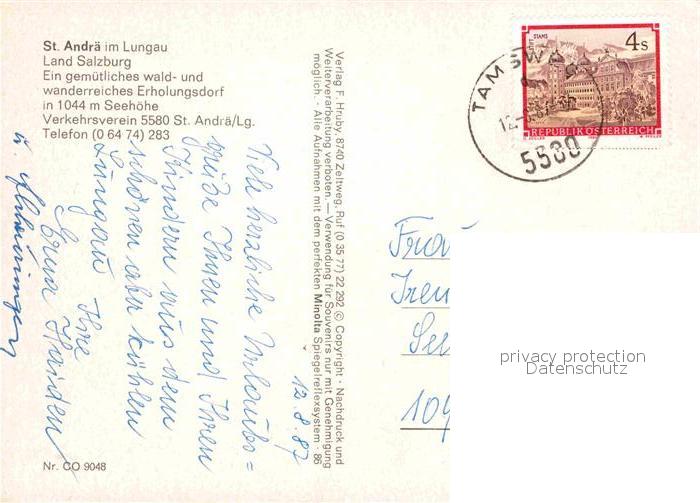 St. Andrä im Lungau
Land Salzburg
Ein gemütliches wald- und
wanderreiches Erholungsdorf
in 1044 m Seehöhe
Verkehrsverein 5580 St. Andrä/Lg.
Telefon (0 64 74) 283
12.8.87
Viele herzliche Urlaubs=
grüße Ihnen und Ihren
Kindern aus dem
schönen aber kühlen
Lungau
Ihre
Erna Haiden
u.
Nr. CO 9048
Verlag F. Hruby, 8740 Zeltweg, Ruf (0 35 77) 22 292 © Copyright · Nachdruck und
Weiterverarbeitung verboten. — Verwendung für Souvenirs nur mit Genehmigung
möglich. · Alle Aufnahmen mit dem perfekten Minolta Spiegelreflexsystem · 86
STIFT STAMS
4 S
REPUBLIK ÖSTERREICH
TAMSWEG
5580
Frau
Iren
Sei
109
privacy protection
Datenschutz